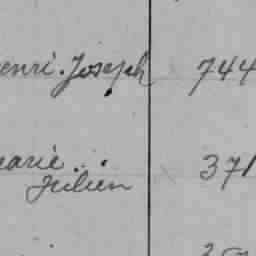 enri. Joseph 744
marie..
Julien 371